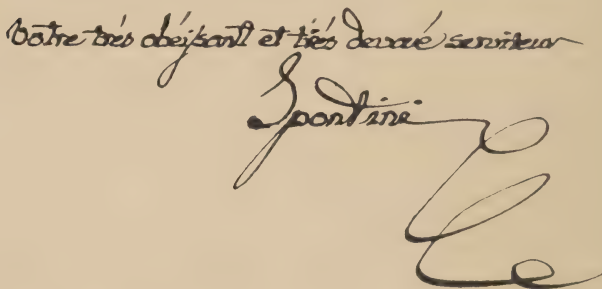 Votre très obéissant et très dévoué serviteur
Spontini